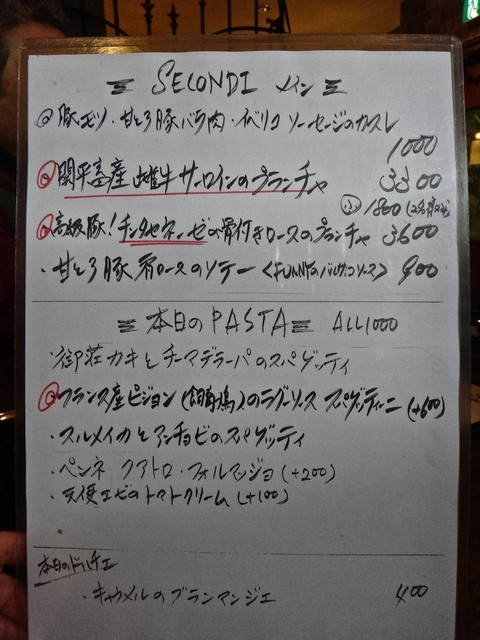 SECONDI メイン
豚モツ・甘とろ豚バラ肉・イベリコ ソーセージのカスレ
1000
関平畜産 雌牛 サーロインのプランチャ 3300
小 1800
高級豚!チンタセネーゼの骨付きロースのプランチャ 3600
・甘とろ豚 肩ロースのソテー <FUNNYのバルサミコソース> 900
本日のPASTA ALL1000
・御荘カキとチーマデラーパのスパゲッティ
フランス産ピジョン(飼鳩)のラグソース スパゲッティーニ (+600)
・スルメイカとアンチョビのスパゲッティ
・ペンネ クアトロ・フォルマッジョ (+200)
・天使エビのトマトクリーム (+100)
本日のドルチェ
・キャラメルのブランマンジェ 400